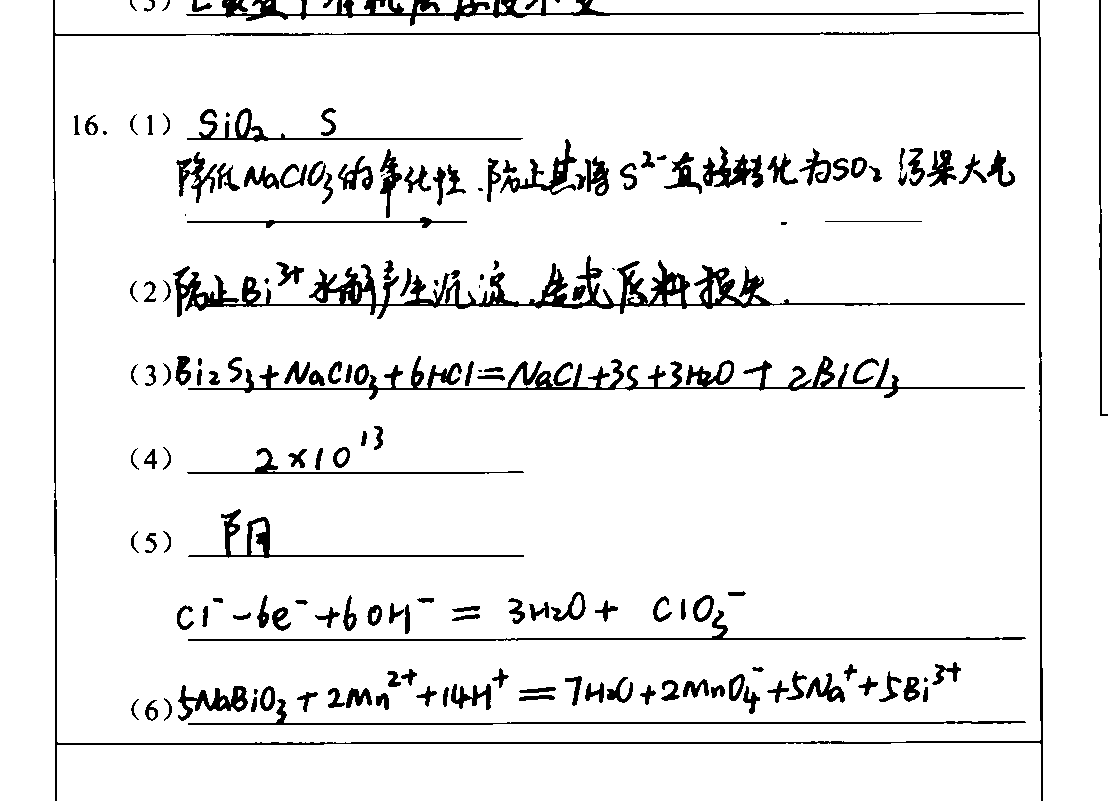 (3) 装置中有机层厚度不变
16.(1) SiO₂、S
降低NaClO₃的氧化性,防止其将S²⁻直接转化为SO₂污染大气
(2)防止Bi³⁺水解产生沉淀,造成原料损失.
(3)Bi₂S₃+NaClO₃+6HCl=NaCl+3S+3H₂O+2BiCl₃
(4) 2×10¹³
(5) 阴
Cl⁻-6e⁻+6OH⁻=3H₂O+ClO₃⁻
(6)5NaBiO₃+2Mn²⁺+14H⁺=7H₂O+2MnO₄⁻+5Na⁺+5Bi³⁺